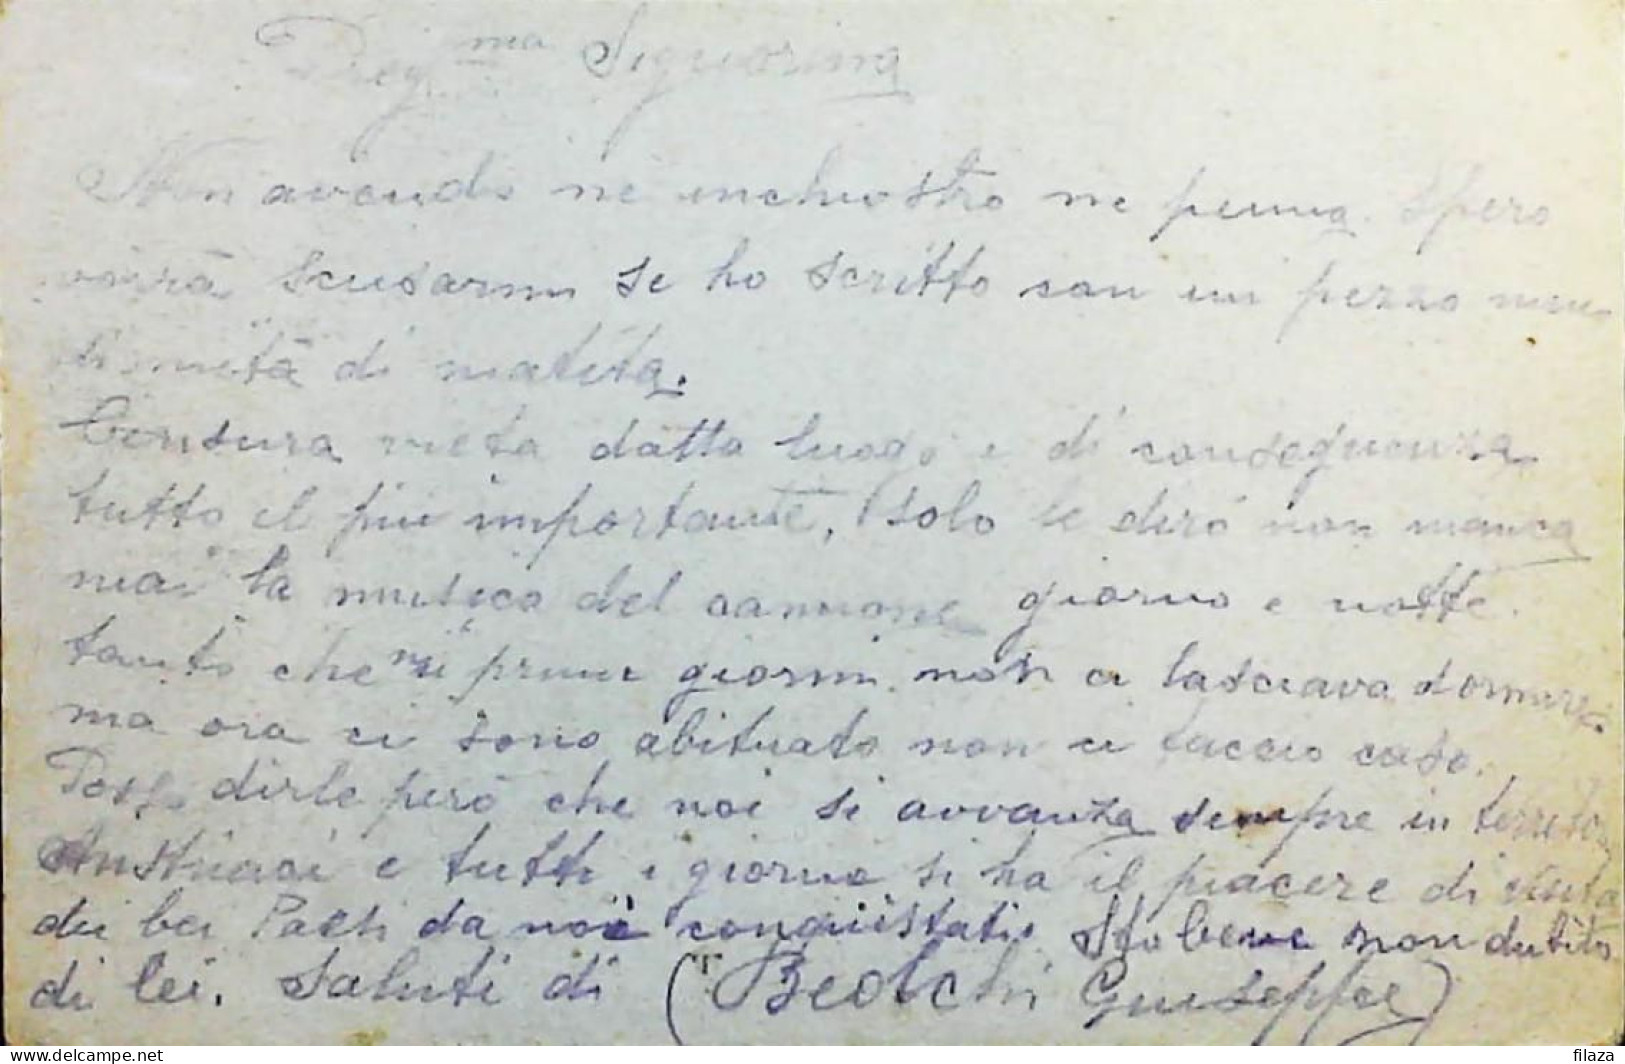 Preg.ma Signorina
Non avendo ne inchiostro ne penna. Spero
vorrà scusarmi se ho scritto con un pezzo
di matita.
Censura vieta datta luogo e di conseguenza
tutto il piu importante, solo le dirò non manca
mai la musica del cannone giorno e notte.
tanto che nei primi giorni non ci lasciava dormire.
ma ora ci sono abituato non ci faccio caso.
Posso dirle però che noi si avvanza sempre in
Austriaci e tutti i giorni si ha il piacere di
dei bei Paesi da noi conquistati. Sto bene non dubito
di lei. Saluti di (Beolchi Giuseppe)
delcampe.net
filaza